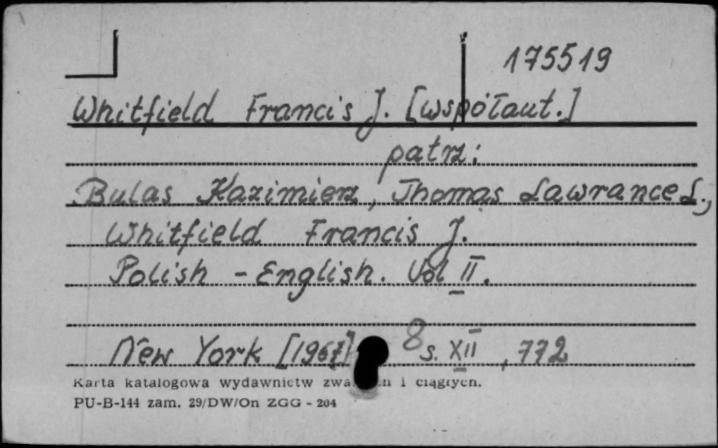 175519
Whitfield Francis J. [współaut.]
patrz:
Bulas Kazimierz, Thomas Lawrance L.,
Whitfield Francis J.
Polish - English. Vol II.
New York [1967] 8 s. XII, 772
Karta katalogowa wydawnictw i ciągłych.
PU-B-144 zam. 29/DW/On ZGG - 204